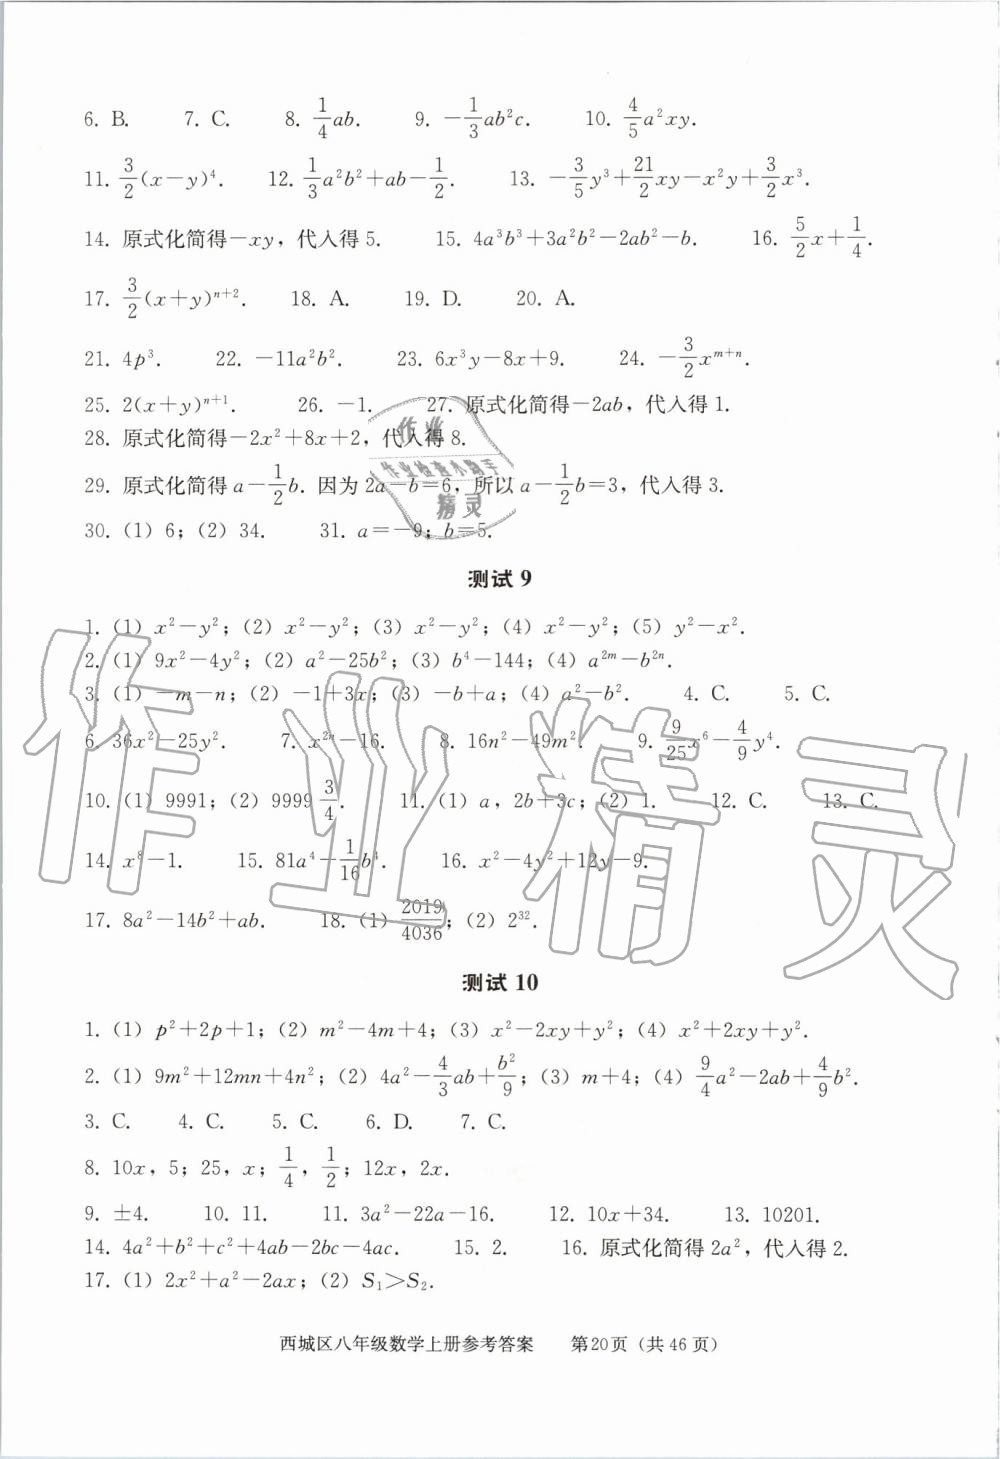 6. B.  7. C.  8. 1/4 ab.  9. −1/3 ab²c.  10. 4/5 a²xy.
11. 3/2 (x−y)⁴.  12. 1/3 a²b²+ab−1/2.  13. −3/5 y³+21/2 xy−x²y+3/2 x³.
14. 原式化简得−xy，代入得 5.  15. 4a³b³+3a²b²−2ab²−b.  16. 5/2 x+1/4.
17. 3/2 (x+y)ⁿ⁺².  18. A.  19. D.  20. A.
21. 4p³.  22. −11a²b².  23. 6x³y−8x+9.  24. −3/2 xᵐ⁺ⁿ.
25. 2(x+y)ⁿ⁺¹.  26. −1.  27. 原式化简得−2ab，代入得 1.
28. 原式化简得−2x²+8x+2，代入得 8.
29. 原式化简得 a−1/2 b. 因为 2a−b=6，所以 a−1/2 b=3，代入得 3.
30. (1) 6；(2) 34.  31. a=−9；b=5.
测试 9
1. (1) x²−y²；(2) x²−y²；(3) x²−y²；(4) x²−y²；(5) y²−x².
2. (1) 9x²−4y²；(2) a²−25b²；(3) b⁴−144；(4) a²ᵐ−b²ⁿ.
3. (1) −m−n；(2) −1+3x；(3) −b+a；(4) a²−b².  4. C.  5. C.
6. 36x²−25y².  7. x²ⁿ−16.  8. 16n²−49m².  9. 9/25 x⁶−4/9 y⁴.
10. (1) 9991；(2) 9999 3/4.  11. (1) a，2b+3c；(2) 1.  12. C.  13. C.
14. x⁸−1.  15. 81a⁴−1/16 b⁴.  16. x²−4y²+12y−9.
17. 8a²−14b²+ab.  18. (1) 2019/4036；(2) 2³².
测试 10
1. (1) p²+2p+1；(2) m²−4m+4；(3) x²−2xy+y²；(4) x²+2xy+y².
2. (1) 9m²+12mn+4n²；(2) 4a²−4/3 ab+b²/9；(3) m+4；(4) 9/4 a²−2ab+4/9 b².
3. C.  4. C.  5. C.  6. D.  7. C.
8. 10x，5；25，x；1/4，1/2；12x，2x.
9. ±4.  10. 11.  11. 3a²−22a−16.  12. 10x+34.  13. 10201.
14. 4a²+b²+c²+4ab−2bc−4ac.  15. 2.  16. 原式化简得 2a²，代入得 2.
17. (1) 2x²+a²−2ax；(2) S₁>S₂.
西城区八年级数学上册参考答案  第20页（共 46 页）
作业
作业检查小助手
精灵
作业精灵